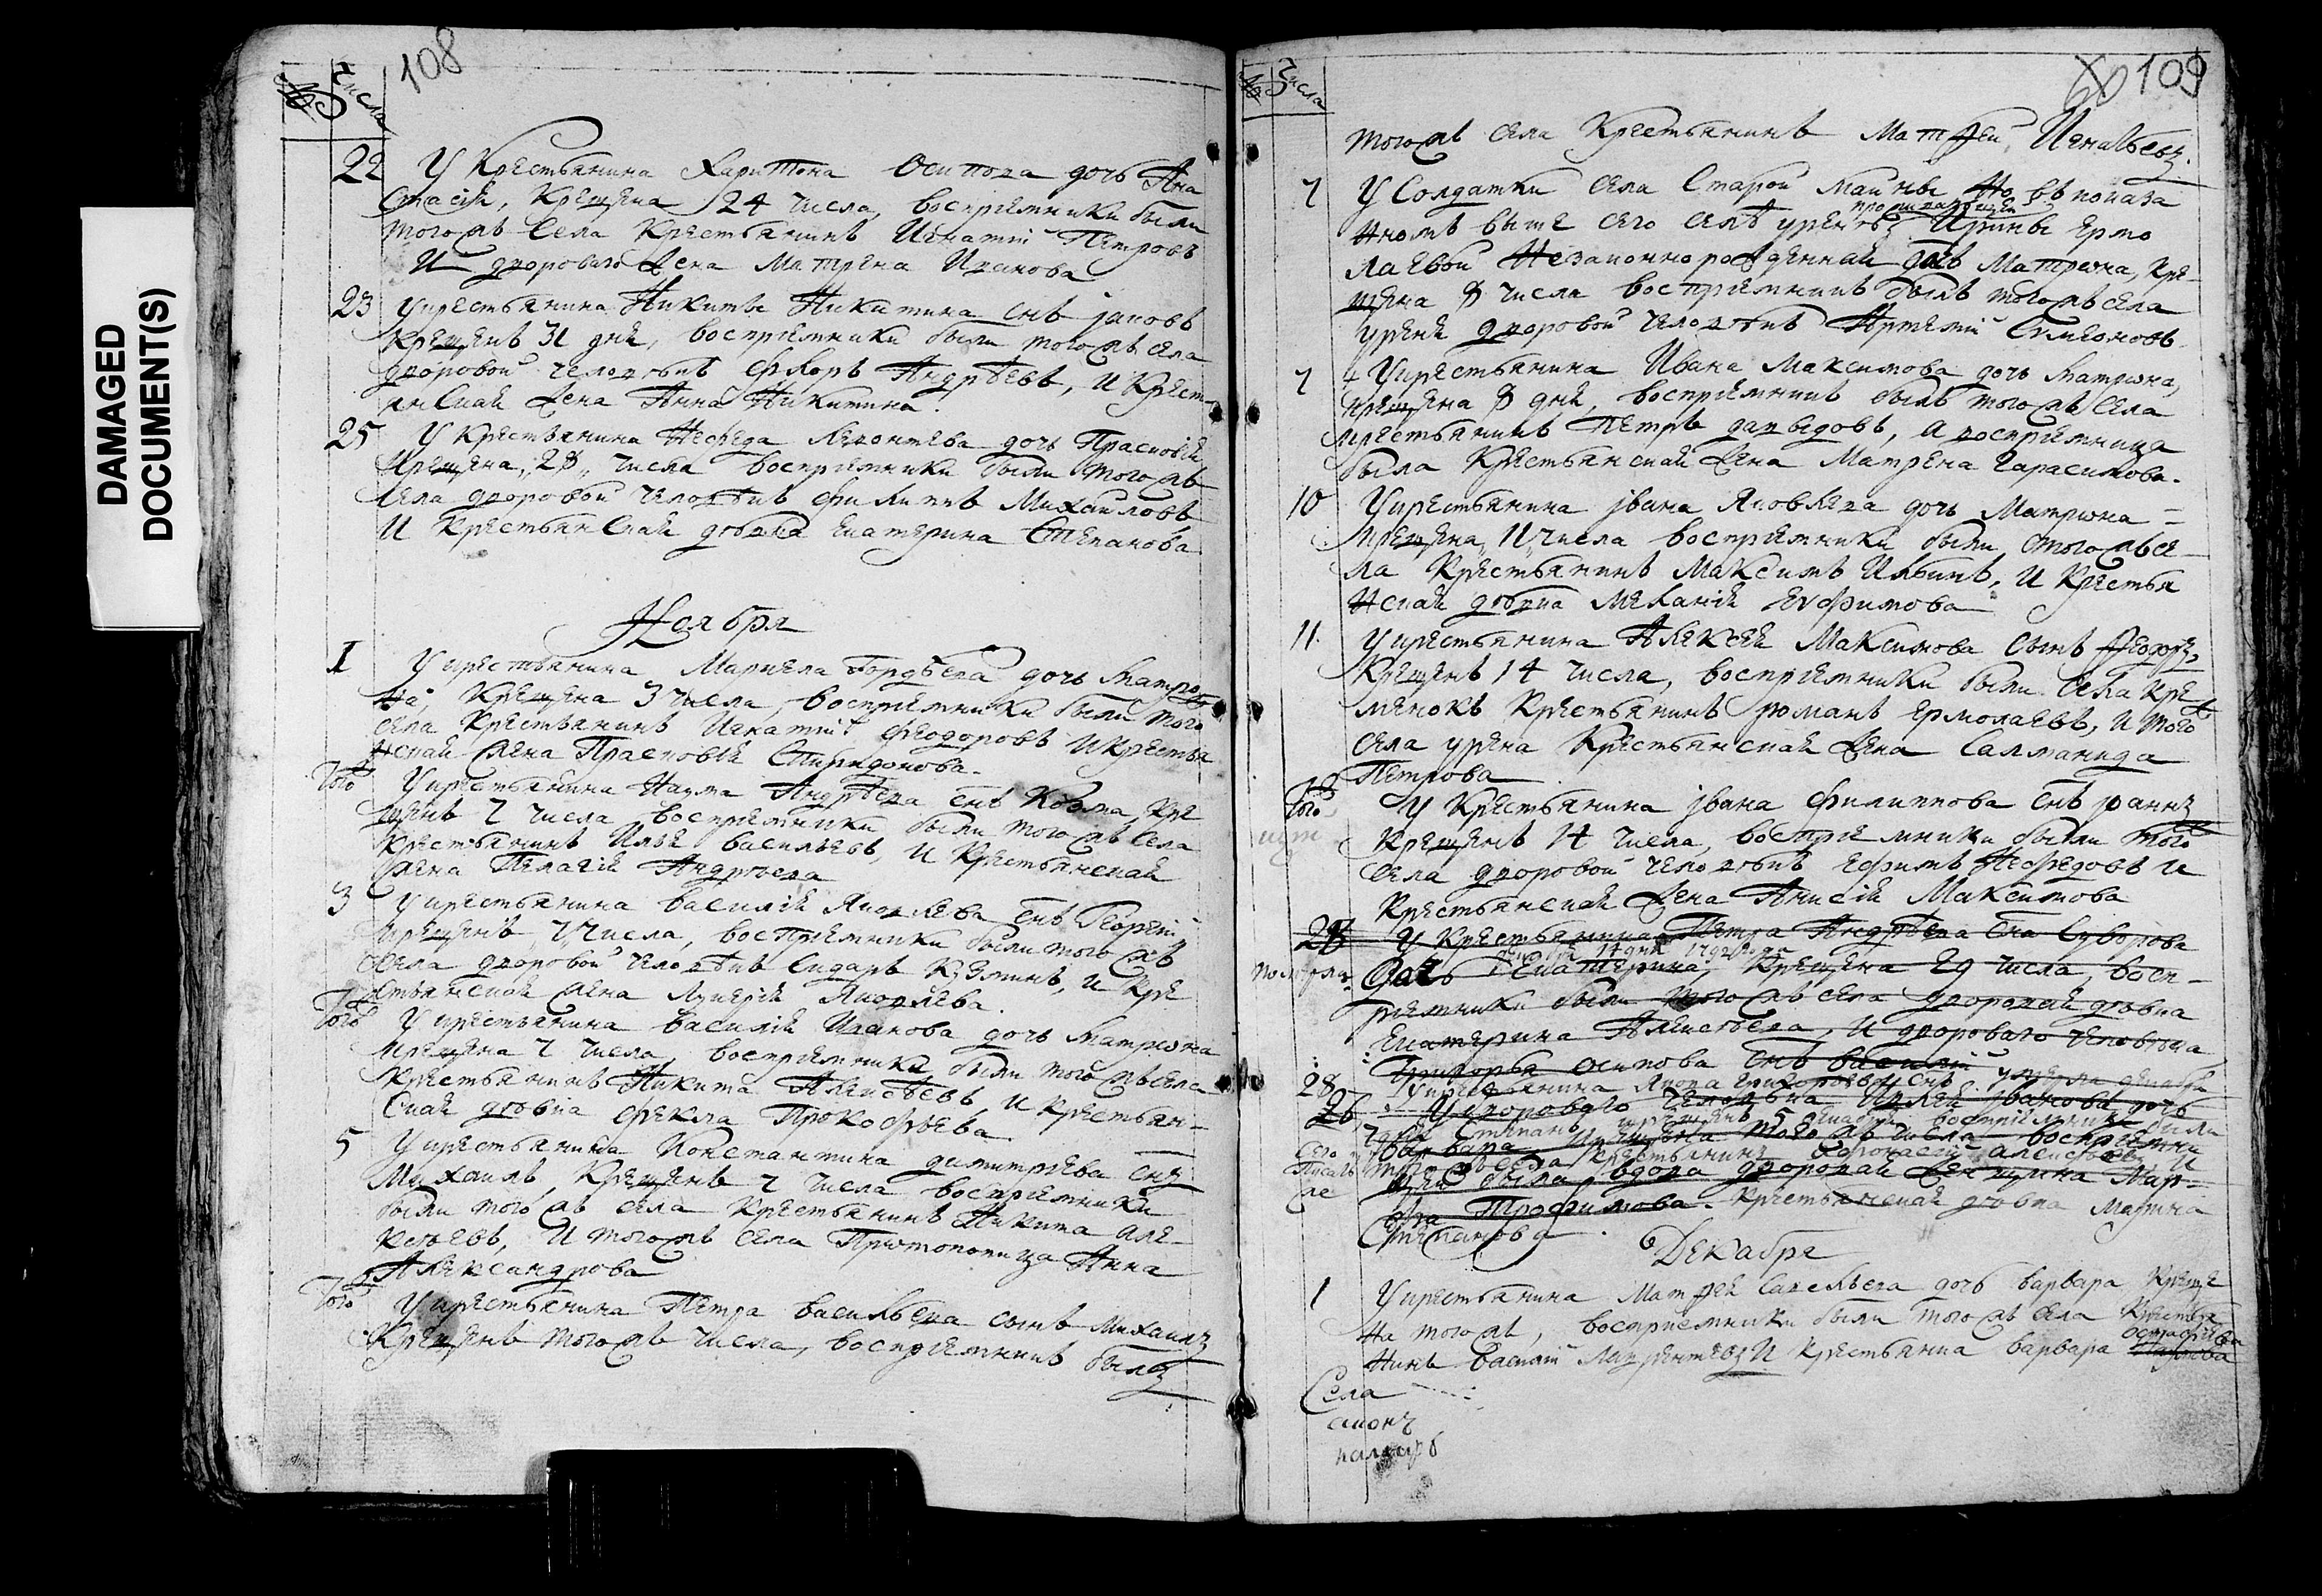 DAMAGED
DOCUMENT(S)
108
Числа
22 У Крестьянина Харитона Осипова дочь Ана
стасія, Крещена 24 числа, восприемники были
тогожъ Села Крестьянинъ Игнатій Петровъ
И дворового жена Матрена Иванова
23 у крестьянина Никиты Никитина снъ іаковъ
Крещенъ 31 дня, восприемники были тогожъ села
дворовой человѣкъ Флоръ Андрѣевъ, и Крест
янская жена Анна Никитина.
25 У Крестьянина Нефеда Леонтева дочь Прасковія
Крещена, 28, числа восприемники были тогожъ
села дворовой человѣкъ Филипъ Михаиловъ
И Крестьянская дѣвка Екатерина Степанова
Ноября
1 У крестьянина Маркела Гордѣева дочь Матро
на, Крещена 3 числа, восприемники были того
села Крестьянинъ Игнатій Феодоровъ и крестья
нская жена Прасковія Спиридонова.
Того У крестьянина Наума Андрѣева снъ Козма, Кре
щенъ 7 числа восприемники были тогожъ Села
Крестьянинъ Илья Васильевъ, и Крестьянская
жена Пелагія Андрѣева
3 У крестьянина Василія Яковлева снъ Георгій
Крещенъ 7 числа, восприемники были тогожъ
Села дворовой человѣкъ Сидаръ Кузминъ, и Кре
стьянская жена Лукерія Яковлева.
Того У крестьянина Василія Иванова дочь Матрона
Крещена 7 числа, восприемники были тогожъ села
Крестьянинъ Никита Алексѣевъ, и Крестьян-
ская дѣвка Фекла Прокофьева.
5 У крестьянина Константина Димитриева снъ
Михаилъ, Крещенъ 7 числа восприемники
были тогожъ села Крестьянинъ Никита Але-
ксѣевъ, И тогожъ села Протопопица Анна
Александрова
Того У крестьянина Петра Васильева сынъ Михаилъ
Крещенъ тогожъ числа, восприемникъ былъ
109
Числа
тогожъ села Крестьянинъ Матфей Игнатьевъ.
7 У Солдатки села Старой Майны Но въ показа
проживающей
нномъ выше сего селѣ уренѣ Ирины Ермо
лаевой Незаконнорожденная дочь Матрона, Кре-
щена 8 числа восприемникъ былъ тогожъ села
уреня дворовой человѣкъ Артемій Симеоновъ
7 У крестьянина Ивана Максимова дочь Матрона,
крещена 8 дня, восприемникъ былъ тогожъ Села
крестьянинъ Петръ Давыдовъ, а восприемница
была Крестьянская жена Матрена Гарасимова.
10 У крестьянина івана Яковлева дочь Матрона =
Крещена, 11, числа восприемники были, тогожъ се
ла Крестьянинъ Максимъ Ильинъ, И Крестья
нская дѣвка Меланія Ехфимова
11. У крестьянина Алексея Максимова сынъ Феодоръ,
Крещенъ 14 числа, восприемники были села Кре
менокъ Крестьянинъ романъ Ермолаевъ, и того
села урена Крестьянская жена Салманида
Петрова
Того У Крестьянина івана Филиппова снъ іоаннъ
Крещенъ 14 числа, восприемники были того
села дворовой человѣкъ Ефимъ Нефедовъ и
Крестьянская жена Анисія Максимова
28 У Крестьянина Петра Андрѣева сна Суворова
дочь Екатерина, Крещена 29 числа, восп-
риемники были тогожъ села дворовая дѣвка
Екатерина Алексѣева, И дворового человѣка
Григорья Осипова снъ Василій
28 У крестьянина Якова Григорьева снъ
26 У дворового человѣка Ивана дочь
Степанъ, крещенъ 5 декабря восприемники были
Варвара Крещена тогожъ числа восприемни
тогожъ села крестьянинъ Афонасій Алексѣевъ, И
цей была вдова дворовая женщина Мар-
фа Трофимова. Крестьянская дѣвка Марина
Степанова
Декабря
1 У крестьянина Матфея Савельева дочь Варвара Креще
на тогожъ, восприемники были тогожъ села Крестья
нинъ Василій Лаврентьевъ И Крестьянка Варвара
Села